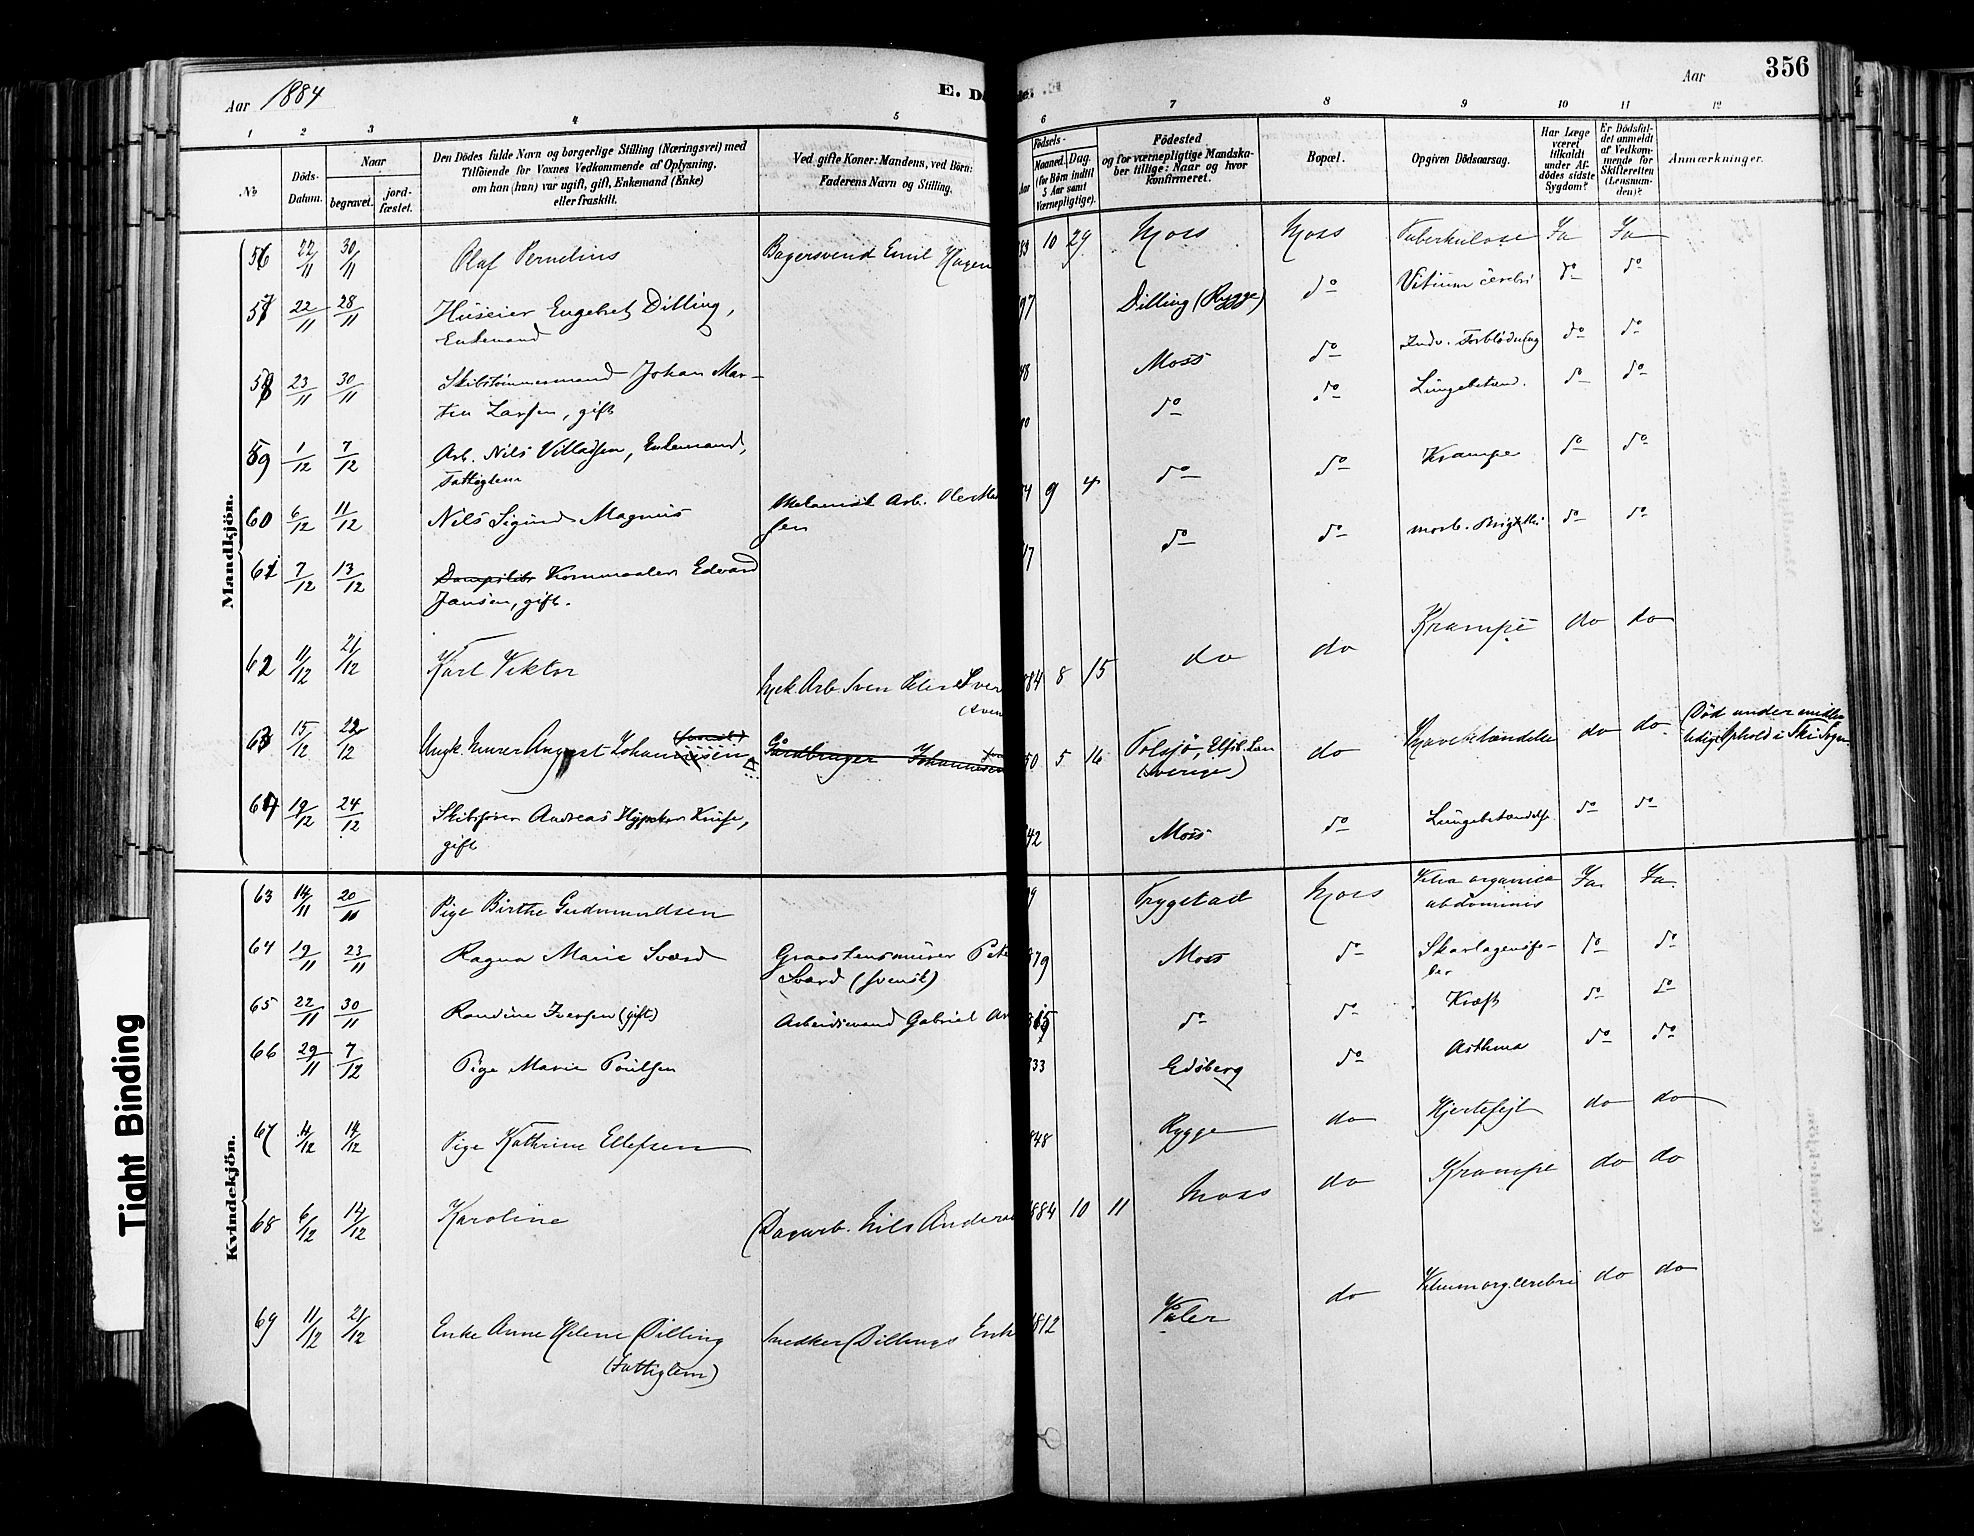 Aar 1884
E. Dø
de.
Aar
356
1 2 3 4 5 6 7 8 9 10 11 12
No
Døds-
Datum.
Naar
begravet.
jord-
fæstet.
Den Dødes fulde Navn og borgerlige Stilling (Næringsvei) med
Tilføiende for Voxnes Vedkommende af Oplysning,
om han (hun) var ugift, gift, Enkemand (Enke)
eller fraskilt.
Ved gifte Koner: Mandens, ved Børn:
Faderens Navn og Stilling.
Fødsels-
Aar
Maaned.
Dag.
(for Børn indtil
5 Aar samt
Værnepligtige).
Fødested
og for værnepligtige Mandska-
ber tillige: Naar og hvor
konfirmeret.
Bopæl.
Opgiven Dødsaarsag.
Har Læge
været
tilkaldt
under Af-
dødes sidste
Sygdom?
Er Dødsfal-
det anmeldt
af Vedkom-
mende for
Skifteretten
(Lensman-
den)?
Anmærkninger.
Mandkjön.
56 22/11 30/11 Olaf Pernelius Bagersvend Emil Hagen 83 10 29 Moss Moss Tuberkulose Ja Ja
57 22/11 28/11 Huseier Engebret Dilling, 97 Dilling (Rygge) do Vitium cerebri do do
Enkemand
58 23/11 30/11 Skibstømmermand Johan Mar- 48 Moss do Indv. Forblødning do do
tin Larsen, gift
59 1/12 7/12 Arb. Nils Villadsen, Enkemand, do do Lungebetænd. do do
Fattiglem
60 6/12 11/12 Nils Sigurd Magnus Arb. Ole 84 9 4 do do Krampe do do
sen
61 7/12 13/12 Kornmaaler Edvard 47 do do morb. Brightii do do
Jansen, gift.
62 11/12 21/12 Karl Viktor Arb. Sven 84 8 15 do do Krampe do do
63 15/12 22/12 Ungk. Murer August Johannesen (svensk) Gårdbruger Johannesen 50 5 16 (Sverige) do do do (Død under midler-
tidigt Ophold i Ski Sogn
64 19/12 24/12 Skibsfører Andreas Kruse, 42 Moss do Lungebetændelse do do
gift
Kvindekjön.
63 14/11 20/11 Pige Birthe Gudmundsen 9 Trygstad Moss Vitia organica Ja. Ja.
abdominis
64 19/11 23/11 Ragna Marie Sværd Graastensmurer Pete 879 Moss do Skarlagensfe- do do
Sværd (svensk) ber
65 22/11 30/11 Randine Iversen (gift) Arbeidsmand Gabriel do do Kræft do do
66 29/11 7/12 Pige Marie Poulsen 33 Edsberg do Asthma do do
67 4/12 14/12 Pige Kathrine Ellefsen 848 Rygge do Hjertefejl do do
68 6/12 14/12 Karoline Dagarb. Nils Anders 884 10 11 Moss do Krampe do do
69 11/12 21/12 Enke Anne Helene Dilling Snedker Dillings Enk 1812 Våler do Vitium org. cerebri do do
(Fattiglem)
Tight Binding